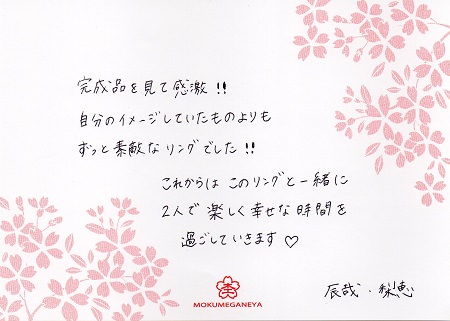 完成品を見て感激!!
自分のイメージしていたものよりも
ずっと素敵なリングでした!!
これからは このリングと一緒に
2人で 楽しく幸せな時間を
過ごしていきます♡
辰哉・梨恵
MOKUMEGANEYA